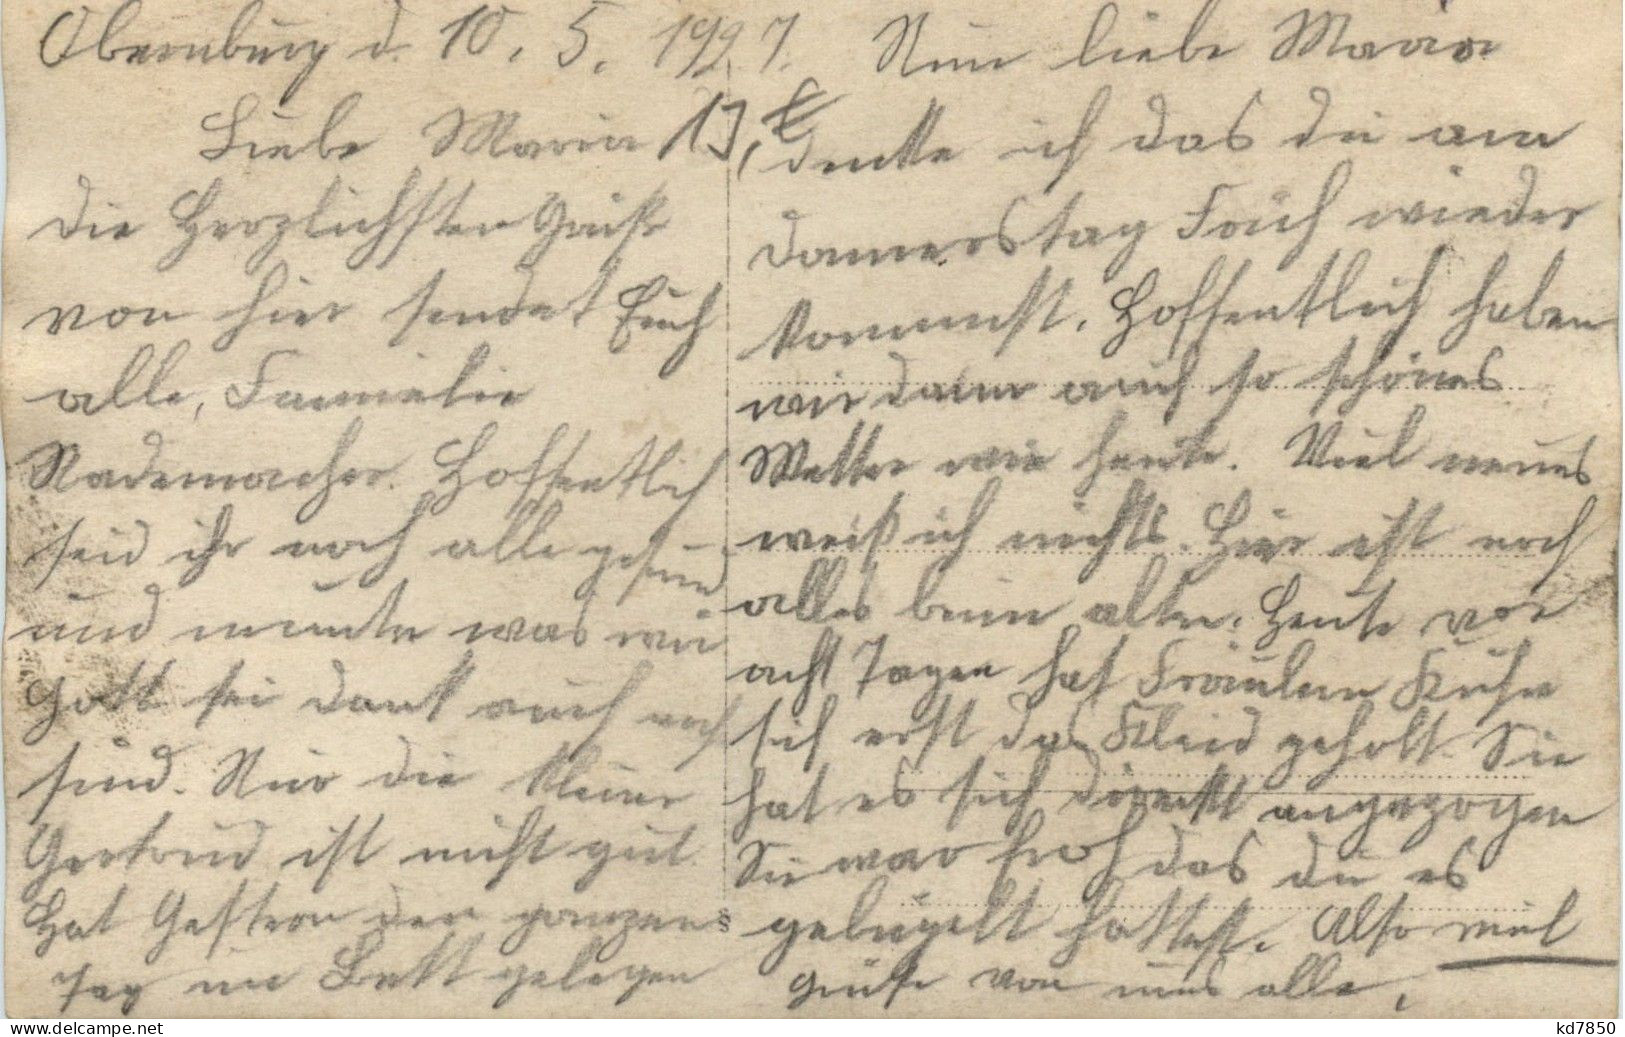 Obernburg d. 10. 5. 1927.
Liebe Maria
die Herzlichsten Grüße
von hier sendet Euch
alle, Familie
Rademacher. Hoffentlich
seid ihr noch alle gesund
und munter was wir
Gott sei dank auch noch
sind. Nur die kleine
Gertrud ist nicht gut
Hat Gestern den ganzen
Tag im Bett gelegen
Nun liebe Maria
denke ich das du am
Donnerstag Früh wieder
kommst. Hoffentlich haben
wir dann auch so schönes
Wetter wie heute. Viel neues
weiß ich nichts. Hier ist noch
alles beim alten. Heute vor
acht Tagen hat Fräulein Kühn
sich erst das Kleid geholt. Sie
hat es sich direckt angezogen
Sie war froh das du es
gebügelt hattest. Also viel
Grüße von uns alle,
kd7850